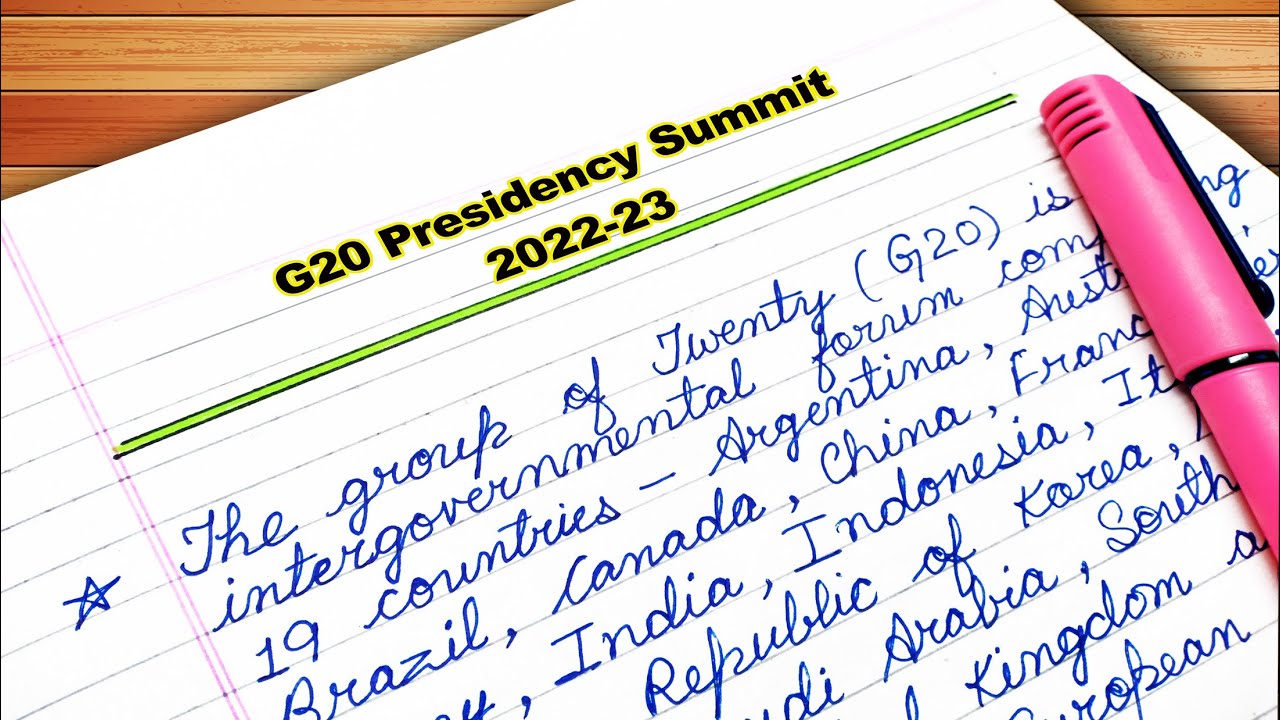 G20 Presidency Summit
2022-23
The group of Twenty (G20) is
intergovernmental forum com
19 countries – Argentina, Aust
Brazil, Canada, China, Franc
India, Indonesia, It
Republic of Korea,
udi Arabia, South
Kingdom a
European